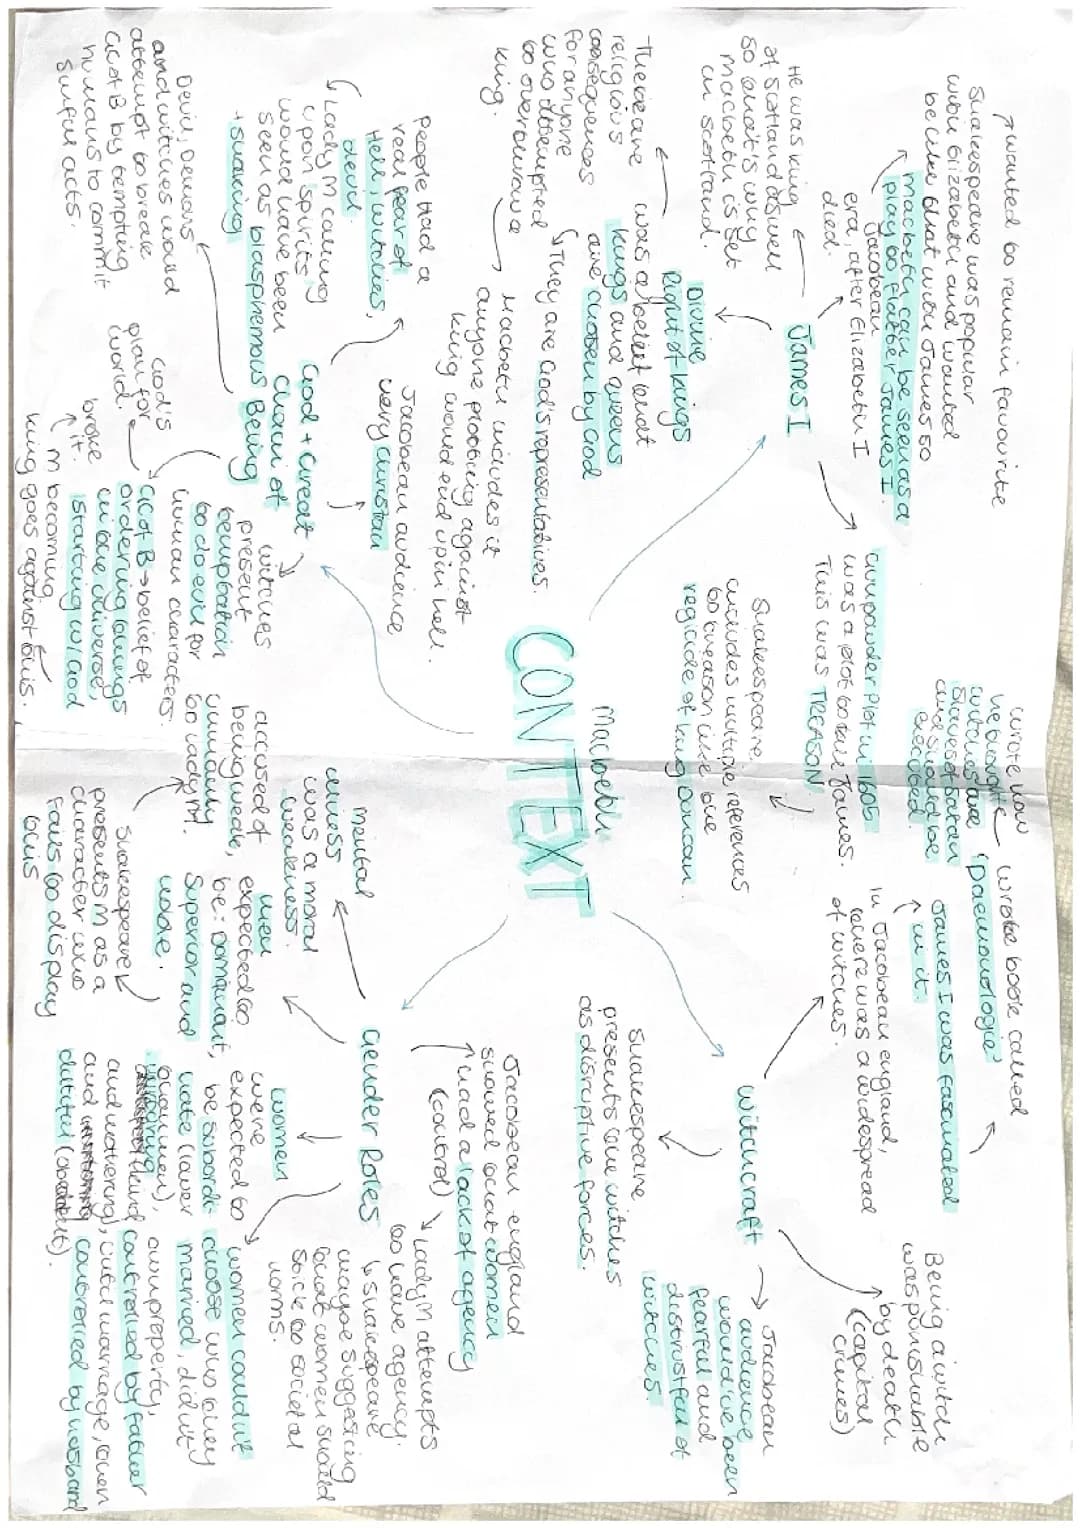 Macbeth
CONTEXT
James I
He was king
of Scotland aswell
so that's why
macbeth is set
in scotland.
Jacobean
era, after Elizabeth I
died.
macbeth can be seen as a
play to flatter James I.
wanted to remain favourite
Shakespeare was popular
with Elizabeth and wanted
to be like that with James too
Gunpowder Plot in 1605
was a plot to kill James.
This was TREASON
Shakespeare
includes multiple references
to treason like the
regicide of king Duncan.
Divine
Right of kings
was a belief that
kings and queens
are chosen by God
They are God's representatives.
There are
religious
consequences
for anyone
who attempted
to overthrow a
king.
Macbeth includes it
anyone plotting against
king would end up in hell.
God + Great
Chain of
Being
Jacobean audience
very christian
People had a
real fear of
Hell, witches,
devil.
Lady M calling
upon spirits
would have been
seen as blasphemous
+ shocking
Devil, Demons
and witches would
attempt to break
GC of B by tempting
humans to commit
sinful acts.
witches
present
temptation
to do evil for
human characters.
GC of B → belief of
ordering things
in the universe,
starting w/ God
God's
plan for
world.
M becoming
king goes against this.
broke
it.
Witchcraft
In Jacobean england,
there was a widespread
of witches.
James I was fascinated
in it.
wrote book called
'Daemonologie'
wrote how
he thought
witches are
slaves of satan
and should be
executed.
Being a witch
was punishable
by death
(capital
crimes)
Jacobean
audience
would've been
fearful and
distrustful of
witches.
Shakespeare
presents the witches
as disruptive forces.
Gender Roles
Jacobean england
showed that women
had a lack of agency
(control)
Lady M attempts
to have agency.
Shakespeare
maybe suggesting
that women should
stick to societal
norms.
mental
illness
was a moral
weakness.
men
expected to
be: dominant,
superior and
noble.
Shakespeare
presents M as a
character who
fails to display
this
accused of
being weak,
unmanly
to lady M.
women
were
expected to
be subordi-
nate (lower
than men),
kind
and mothering,
and
dutiful
women couldn't
choose who they
married, didn't
own property,
controlled by father
until marriage, then
controlled by husband